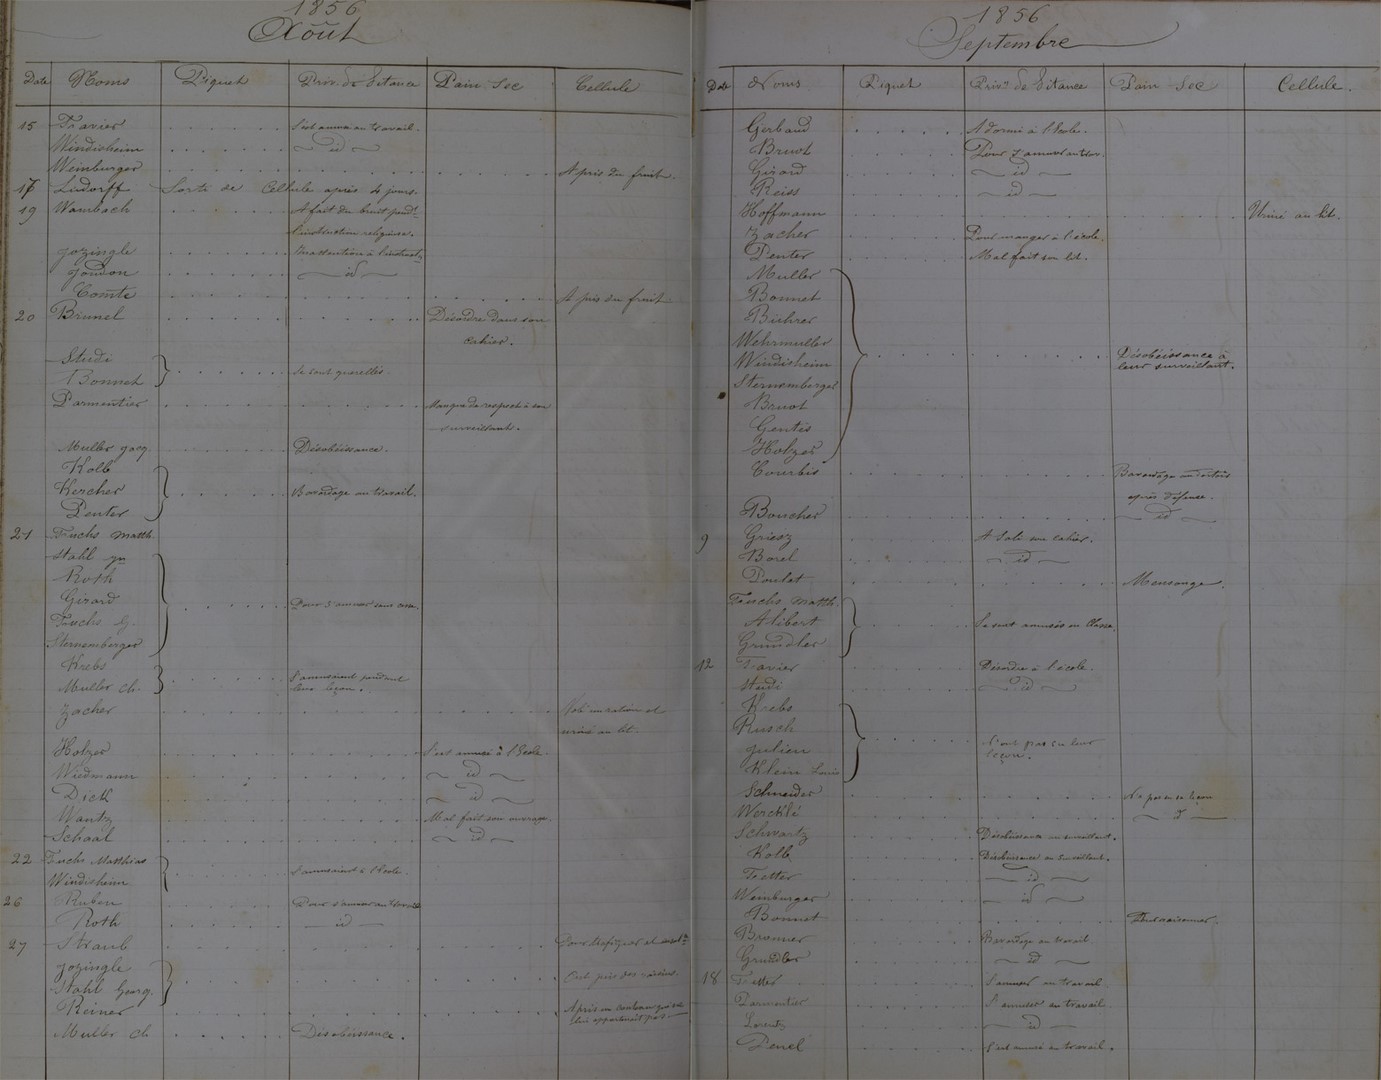 1856
Août
Date Noms Piquet Priv. de Pitance Pain Sec Cellule
15 Travier S'est amusé au travail.
Windisheim id
Weinburger A pris du fruit.
17 Lindorff Sorti de Cellule après 4 jours.
19 Wambach A fait du bruit pendt
l'instruction religieuse.
Jozingle Inattention à l'instruct
Joudon id
Comte A pris du fruit
20 Brunel Désordre dans son
cahier.
Studi
Bonnet Se sont querellés.
Parmentier Manque de respect à son
surveillant.
Muller Jacq. Désobéissance.
Kolb
Kercher Bavardage au travail.
Penter
21 Fuchs Matth.
Stahl
Roth
Girard Pour s'amuser sans cesse.
Fuchs G.
Sternemberger
Krebs
Muller ch. S'amusaient pendant
leur leçon.
Zacher Volé un ration et
uriné au lit.
Holzer S'est amusé à l'Ecole.
Wiedmann id
Dick id
Wantz Mal fait son ouvrage.
Schaal id
22 Fuchs Matthias
Windisheim S'amusaient à l'école.
26 Ruben Pour s'amuser au travail
Roth id
27 Straub Pour
Jozingle
Stahl Georg. Ont pris des raisins.
Reiner A pris un couteau qui ne
lui appartenait pas
Muller ch Désobéissance.
1856
Septembre
Date Noms Piquet Privon de Pitance Pain Sec Cellule.
Gerbaud A dormi à l'école.
Bruot Pour s'amuser au
Girard id
Reiss id
Hoffmann Uriné au lit.
Zacher Pour manger à l'école.
Penter Mal fait son lit.
Muller
Bonnet
Buhrer
Wehrmuller
Windisheim Désobéissance à
leur surveillant.
Sternemberger
Bruot
Gentès
Holzer
Courbis Bavardage au
après défense.
Boucher id
9 Griesz A Sali son cahier.
Borel id
Poulet Mensonge.
Fuchs Matth.
Alibert Se sont amusés en Classe.
Grundler
12 Travier Désordre à l'école.
Studi id
Krebs
Rusch
Julien N'ont pas su leur
leçon.
Klein Louis
Schneider N'a pas su sa leçon
Wercklé
Schwartz Désobéissance au surveillant.
Kolb Désobéissance au Surveillant.
Tretter id
Weinburger id
Bonnet
Bronner Bavardage au travail
Grundler id
18 Tretter S'amuser au travail
Parmentier S'amuser au travail
Lorentz id
Penel S'est amusé au travail.